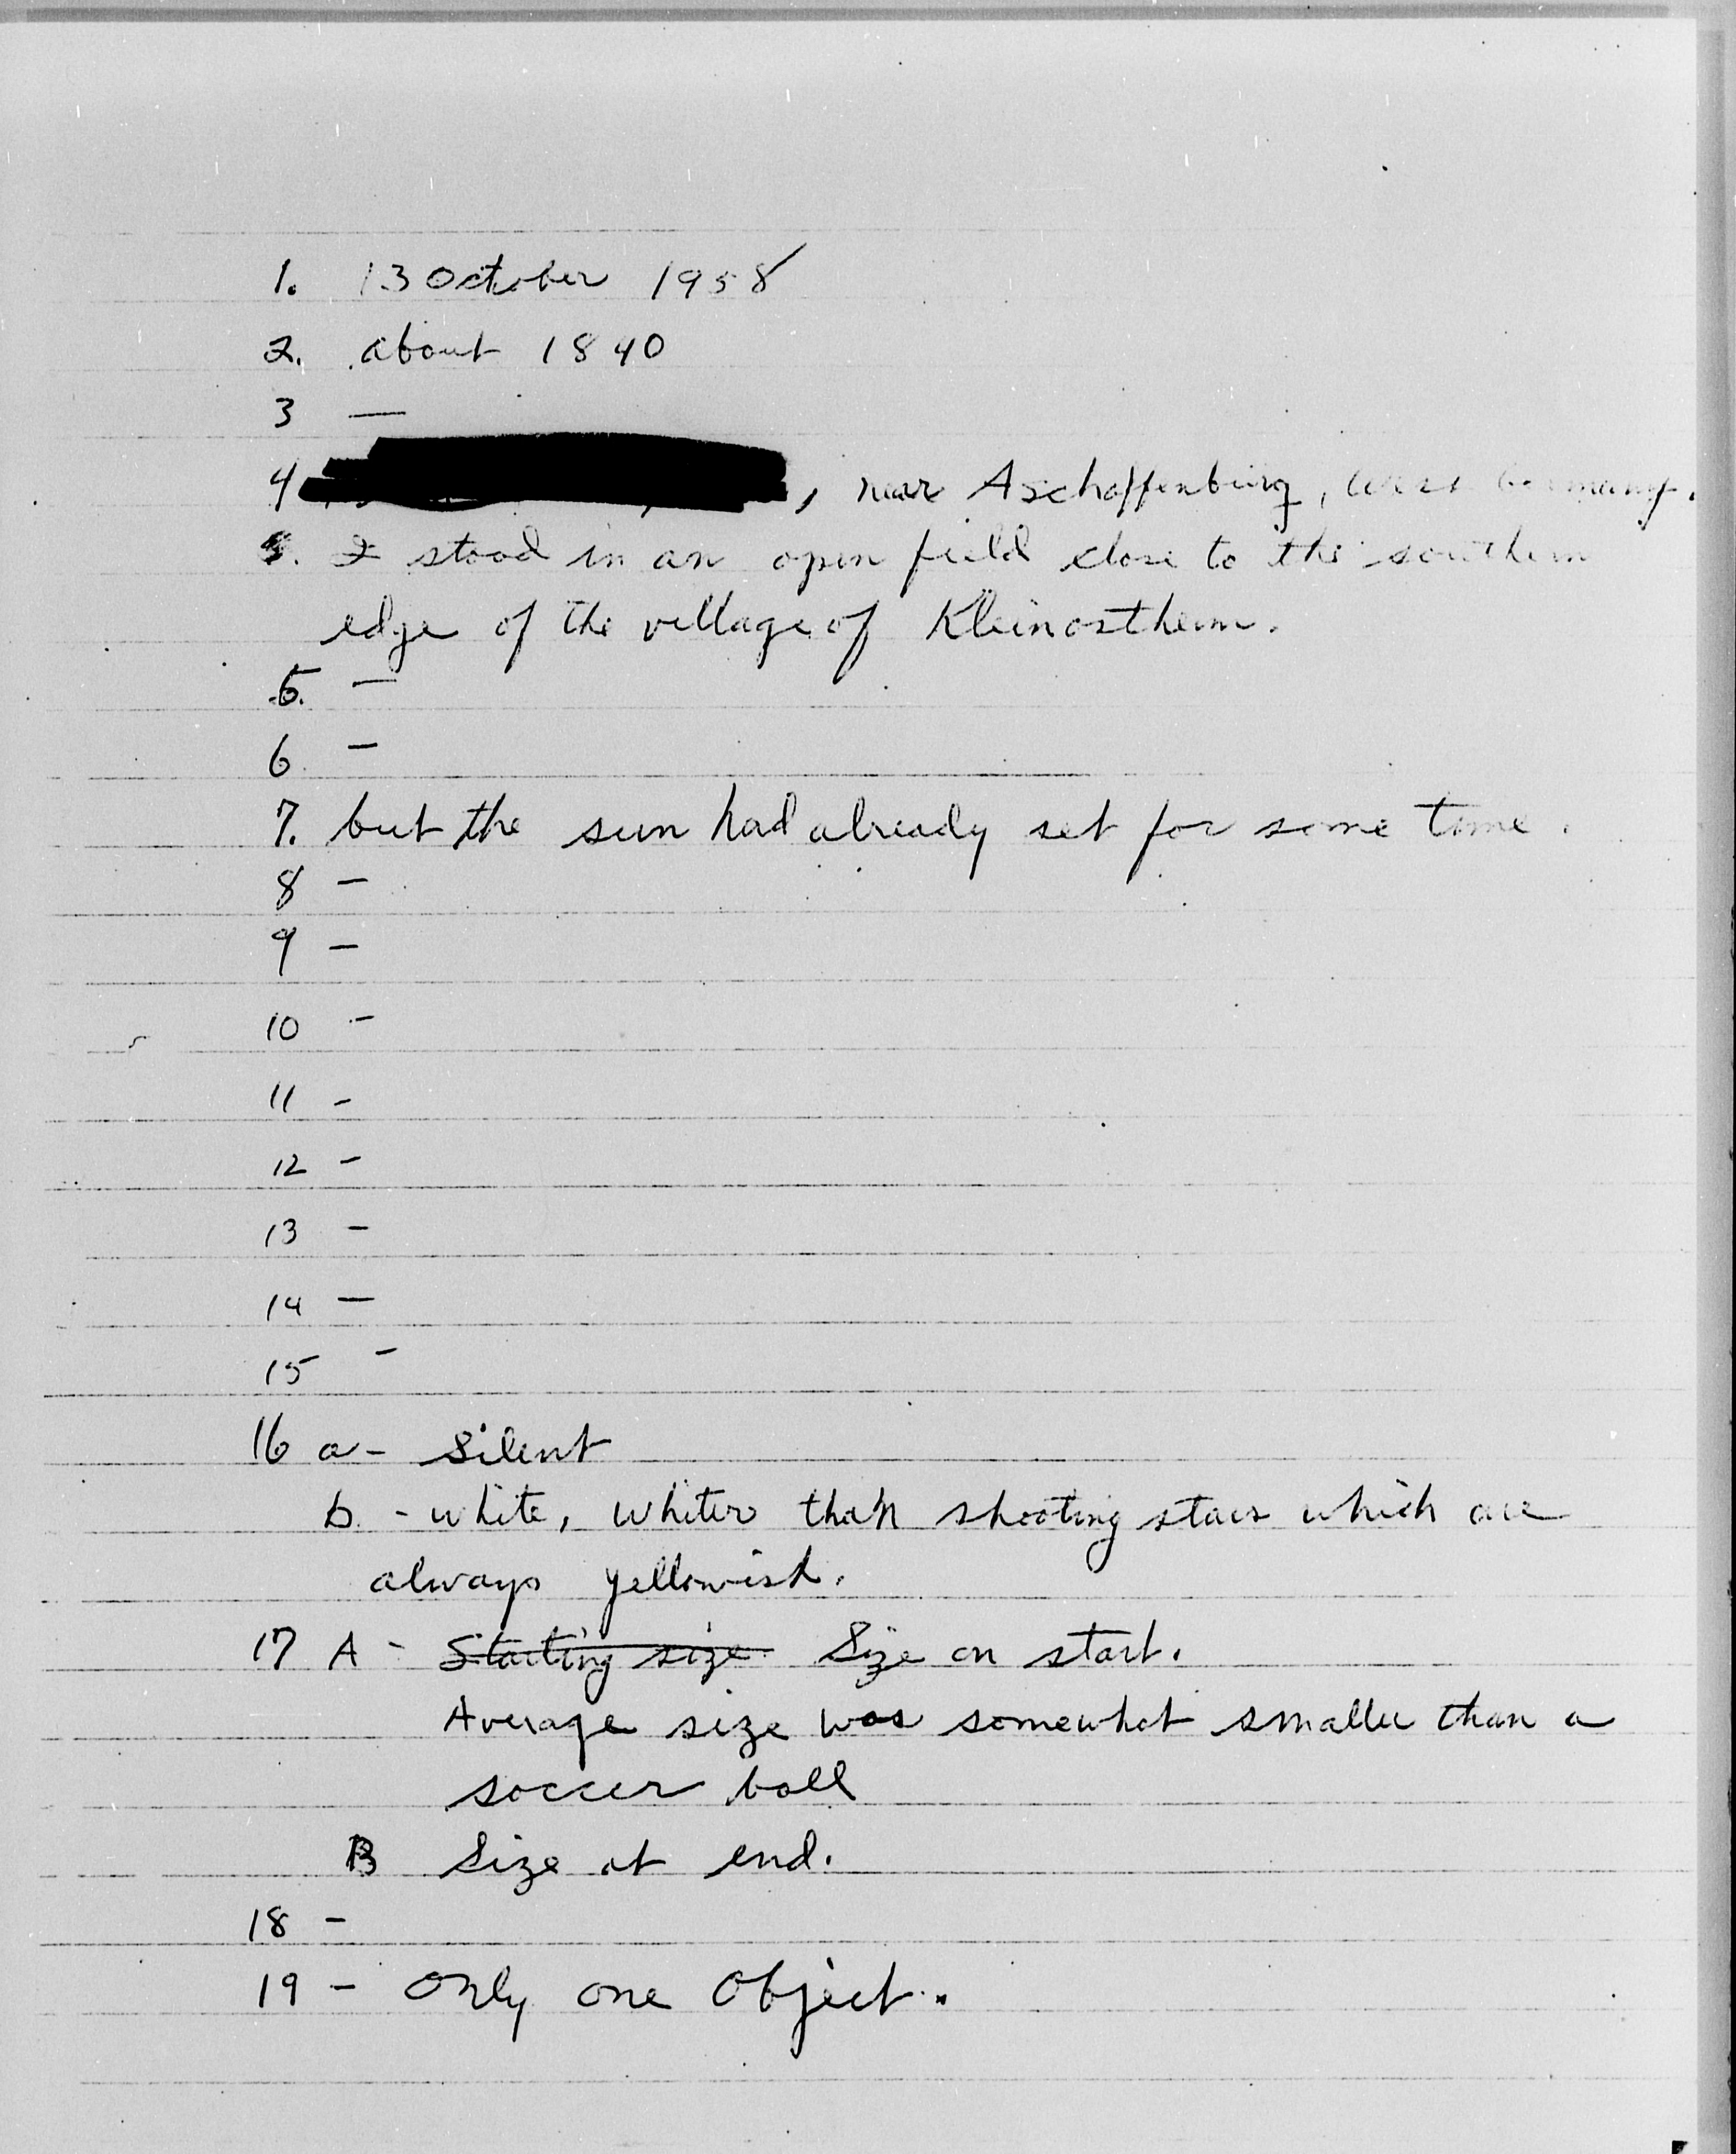 1. 13 October 1958
2. about 1840
3 —
4 , near Aschaffenburg, West Germany.
5. I stood in an open field close to the southern
edge of the village of Kleinostheim.
5. —
6 —
7. but the sun had already set for some time.
8 —
9 —
10 -
11 -
12 -
13 -
14 —
15 -
16 a - Silent
b. - white, whiter than shooting stars which are
always yellowish.
17 A - Starting size Size on start.
Average size was somewhat smaller than a
soccer ball
B Size at end.
18 -
19 - Only one Object.